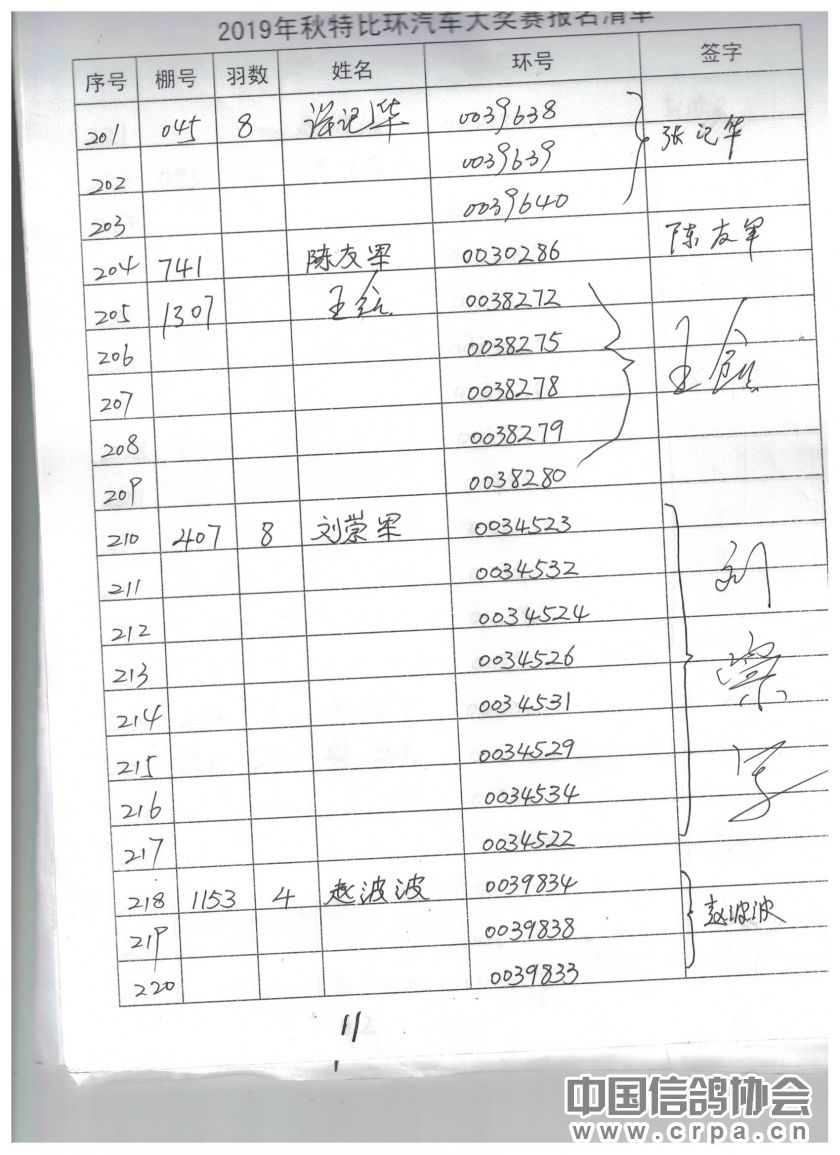 2019年秋特比环汽车大奖赛报名清单
序号 棚号 羽数 姓名 环号 签字
201 045 8 张记华 0039638 张记华
202 0039639
203 0039640
204 741 陈友军 0030286 陈友军
205 1307 0038272
206 0038275
207 0038278
208 0038279
209 0038280
210 407 8 刘崇军 0034523 刘崇军
211 0034532
212 0034524
213 0034526
214 0034531
215 0034529
216 0034534
217 0034522
218 1153 4 赵波波 0039834 赵波波
219 0039838
220 0039833
11
中国信鸽协会
www.crpa.cn